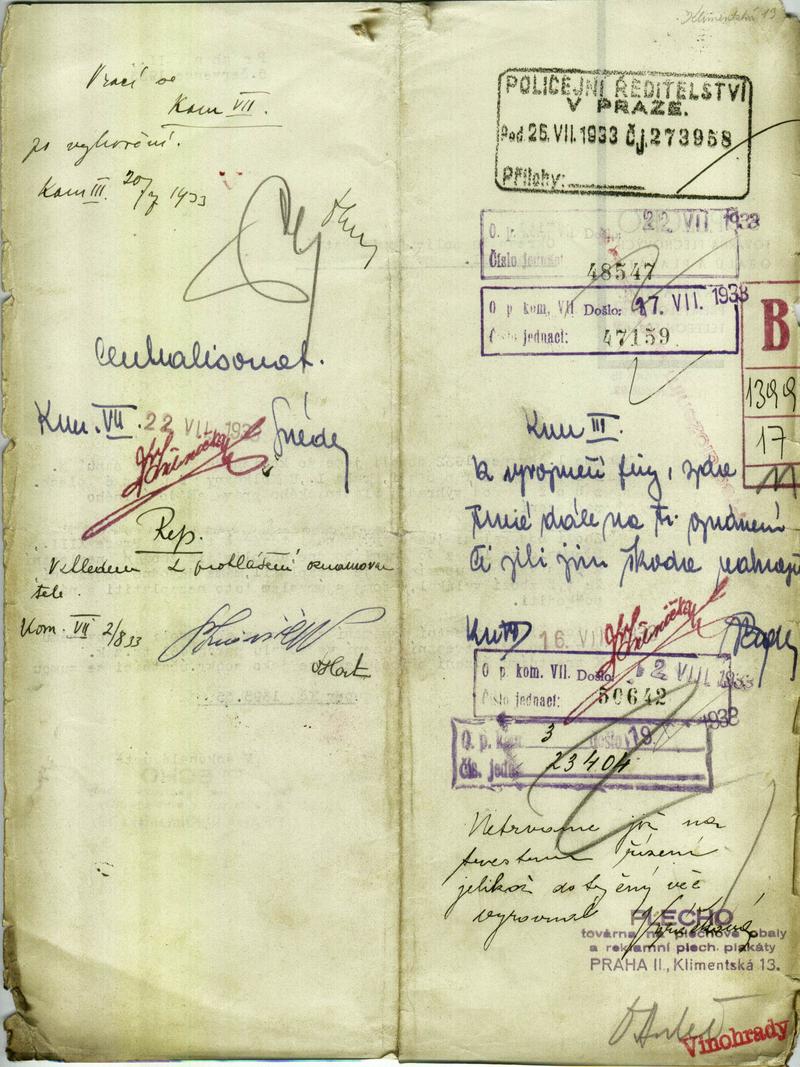 Klimentská 13
Vrací se
Kom VII.
po vyhovění.
Kom III. 20/7 1933
centralisovat.
Kom. VII. 22 VII. 193
Rep.
Vzhledem k prohlášení oznamova
tele.
Kom. VII 2/8 33
POLICEJNÍ ŘEDITELSTVÍ
V PRAZE.
Pod 25. VII. 1933 čj. 273958
Přílohy:
O. p. Došlo: 22 VII 1933
Číslo jednací: 48547
O p kom, VII Došlo: 17. VII. 1933
Číslo jednací: 47159
B
1399
17
Kom III.
k vyrozumění firmy, zda
trvá dále na tr. oznámení
či jí již škoda nahraz
16 VII
O p kom. VII. Došlo: 2 VIII. 1933
Číslo jednací: 50642
O. p. kom 3 došlo 19. 1933
Čís. jedn. 23404
Netrváme již na
trestním řízení
jelikož dotyčný věc
vyrovnal
PLECHO
továrna na plechové obaly
a reklamní plech. plakáty
PRAHA II., Klimentská 13.
Vinohrady